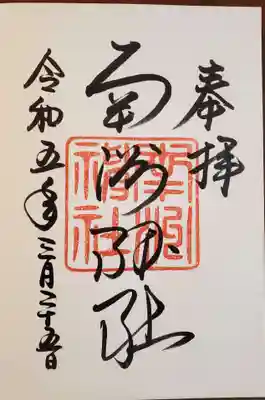 奉拝
南洲神社
令和五年三月二十五日
南洲神社